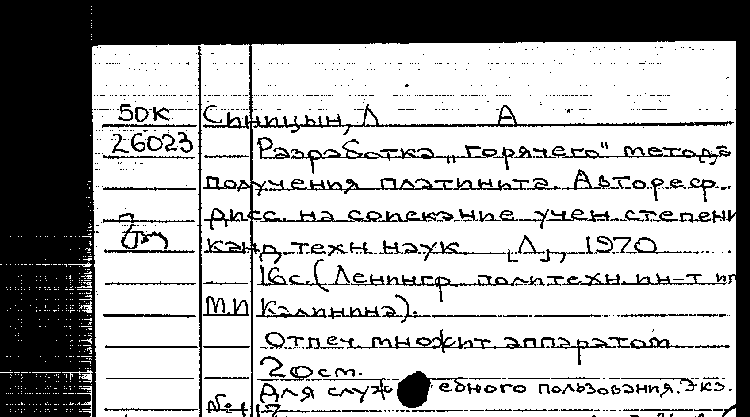 50К Синицын, Л А
26023 Разработка „горячего" метода
получения платинита. Автореф.
дисс. на соискание учен. степени
канд. техн. наук [Л], 1970
16с. (Ленингр. политехн. ин-т
М.И Калинина).
Отпеч. множит. аппаратом
20см.
Для служебного пользования. Экз.